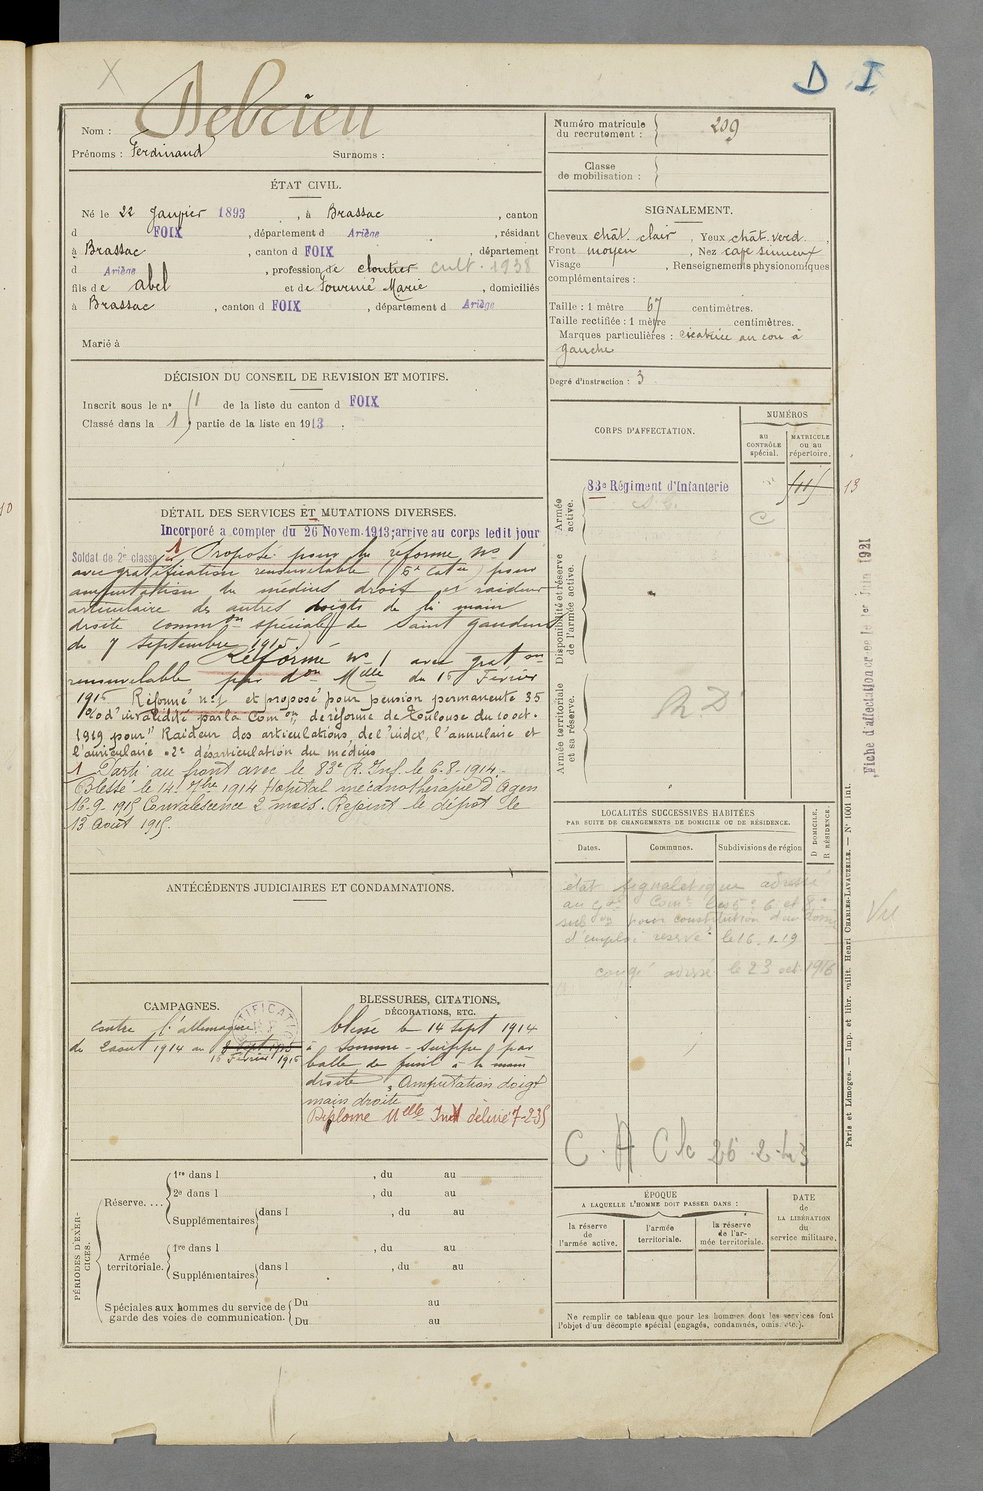 X
D I
Nom : Debrieu
Prénoms : Ferdinand Surnoms :
ÉTAT CIVIL.
Né le 22 Janvier 1893 , à Brassac , canton
d FOIX , département d Ariège , résidant
à Brassac , canton d FOIX , département
d Ariège , profession de cloutier cult. 1938
fils de Abel et de Fourmié Marie , domiciliés
à Brassac , canton d FOIX , département d Ariège
Marié à
DÉCISION DU CONSEIL DE REVISION ET MOTIFS.
Inscrit sous le no 11 de la liste du canton d FOIX
Classé dans la 1 partie de la liste en 1913 .
DÉTAIL DES SERVICES ET MUTATIONS DIVERSES.
Incorporé a compter du 26 Novem. 1913; arrive au corps ledit jour
Soldat de 2e classe 1 Proposé pour la réforme no 1
avec gratification renouvelable (6e Catie) pour
amputation du médius droit et raideur
articulaire des autres doigts de la main
droite comm on spéciale de Saint Gaudens
du 7 septembre 1915.
Réformé no 1 avec grat on
renouvelable par don Mlle du 15 Février
1915 Réformé no 1 et proposé pour pension permanente 35
% d'invalidité par la Com on de réforme de Toulouse du 10 oct.
1919 pour " Raideur des articulations, de l'index, l'annulaire et
l'auriculaire . 2e désarticulation du médius
1 Parti au front avec le 83e R. Inf. le 6-8-1914.
Blessé le 14. 7bre 1914 Hopital mécanothérapie d'Agen
16-9-1915 Convalescence 2 mois. Rejoint le dépot le
13 Aout 1915.
ANTÉCÉDENTS JUDICIAIRES ET CONDAMNATIONS.
CAMPAGNES.
contre l'allemagne
du 2 aout 1914 au 8 sept 1915
15 Février 1915
BLESSURES, CITATIONS,
DÉCORATIONS, ETC.
blessé le 14 sept 1914
à Somme-Suippe par
balle de fusil à la main
droite, Amputation doigt
main droite
Diplome Mlle Inv délivré 7-2-35
PÉRIODES D'EXERCICES.
Réserve....
1re dans l , du au
2e dans l , du au
Supplémentaires dans l , du au
Armée territoriale.
1re dans l , du au
Supplémentaires dans l , du au
Spéciales aux hommes du service de
garde des voies de communication.
Du au
Du au
Numéro matricule
du recrutement : 209
Classe
de mobilisation :
SIGNALEMENT.
Cheveux chât. clair , Yeux chât. verd ,
Front moyen , Nez cave sinueux
Visage , Renseignements physionomiques
complémentaires :
Taille : 1 mètre 67 centimètres.
Taille rectifiée : 1 mètre centimètres.
Marques particulières : cicatrice au cou à
gauche
Degré d'instruction : 3
CORPS D'AFFECTATION.
NUMÉROS
au
CONTRÔLE
spécial.
MATRICULE
ou au
répertoire.
Armée
active.
83e Régiment d'Infanterie
13
Disponibilité et réserve
de l'armée active.
Armée territoriale
et sa réserve.
R. D.
LOCALITÉS SUCCESSIVES HABITÉES
PAR SUITE DE CHANGEMENTS DE DOMICILE OU DE RÉSIDENCE.
Dates. Communes. Subdivisions de région
D DOMICILE.
R RÉSIDENCE.
état signaletique adressé
au Gal Comt les 5e 6e et 8e
subon pour constitution d'un dossier
d'emploi reservé le 16.1.19
congé adressé le 23 oct. 1916
C. A Ck 26.2.43
ÉPOQUE
A LAQUELLE L'HOMME DOIT PASSER DANS :
la réserve
de
l'armée active.
l'armée
territoriale.
la réserve
de l'armée
territoriale.
DATE
de
LA LIBÉRATION
du
service militaire.
Ne remplir ce tableau que pour les hommes dont les services font
l'objet d'un décompte spécial (engagés, condamnés, omis, etc.).
Fiche d'affectation créée le 1er Juin 1921
Vu
Paris et Limoges. — Imp. et libr. milit. Henri CHARLES-LAVAUZELLE. — N° 1001 int.